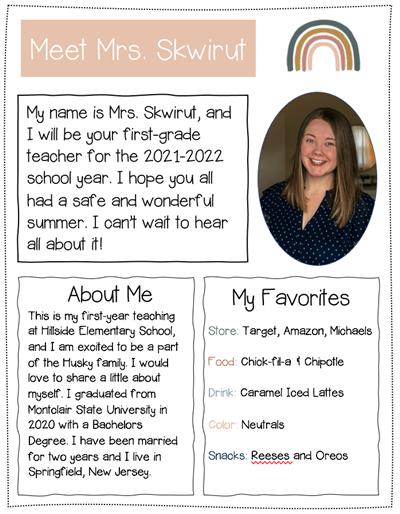 Meet Mrs. Skwirut
My name is Mrs. Skwirut, and
I will be your first-grade
teacher for the 2021-2022
school year. I hope you all
had a safe and wonderful
summer. I can't wait to hear
all about it!
About Me
This is my first-year teaching
at Hillside Elementary School,
and I am excited to be a part
of the Husky family. I would
love to share a little about
myself. I graduated from
Montclair State University in
2020 with a Bachelors
Degree. I have been married
for two years and I live in
Springfield, New Jersey.
My Favorites
Store: Target, Amazon, Michaels
Food: Chick-fil-a & Chipotle
Drink: Caramel Iced Lattes
Color: Neutrals
Snacks: Reeses and Oreos